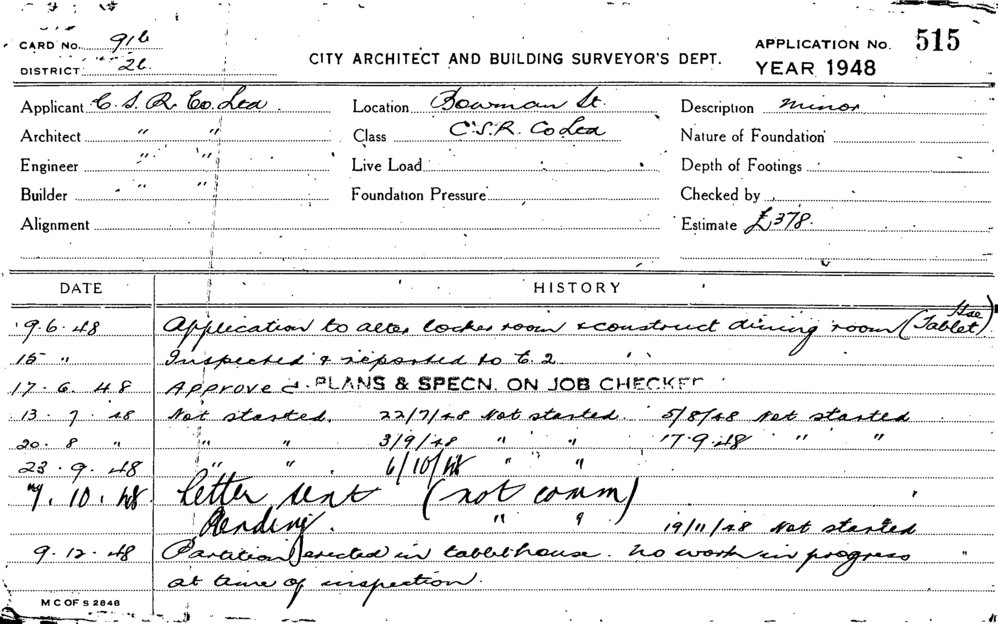 CARD No. 91b
DISTRICT 26
CITY ARCHITECT AND BUILDING SURVEYOR'S DEPT.
APPLICATION No. 515
YEAR 1948
Applicant C. S. R. Co. Ltd. Location Bowman St. Description minor
Architect " " Class C.S.R. Co Ltd Nature of Foundation
Engineer " " Live Load Depth of Footings
Builder " " Foundation Pressure Checked by
Alignment Estimate £378.
DATE HISTORY
9.6.48 Application to alter locker room & construct dining room (Tablet Hse)
15 " Inspected & reported to C.2
17.6.48 Approved. PLANS & SPECN. ON JOB CHECKED
13.7.48 Not started. 22/7/48 Not started. 5/8/48 Not started
20.8 " " " 3/9/48 " " 17.9.48 " "
23.9.48 " " 6/10/48 " "
10.48 Letter sent (not comm)
Pending. " " 19/11/48 Not started
9.12.48 Partition erected in tablet house. No work in progress
at time of inspection.
M C OF S 2848